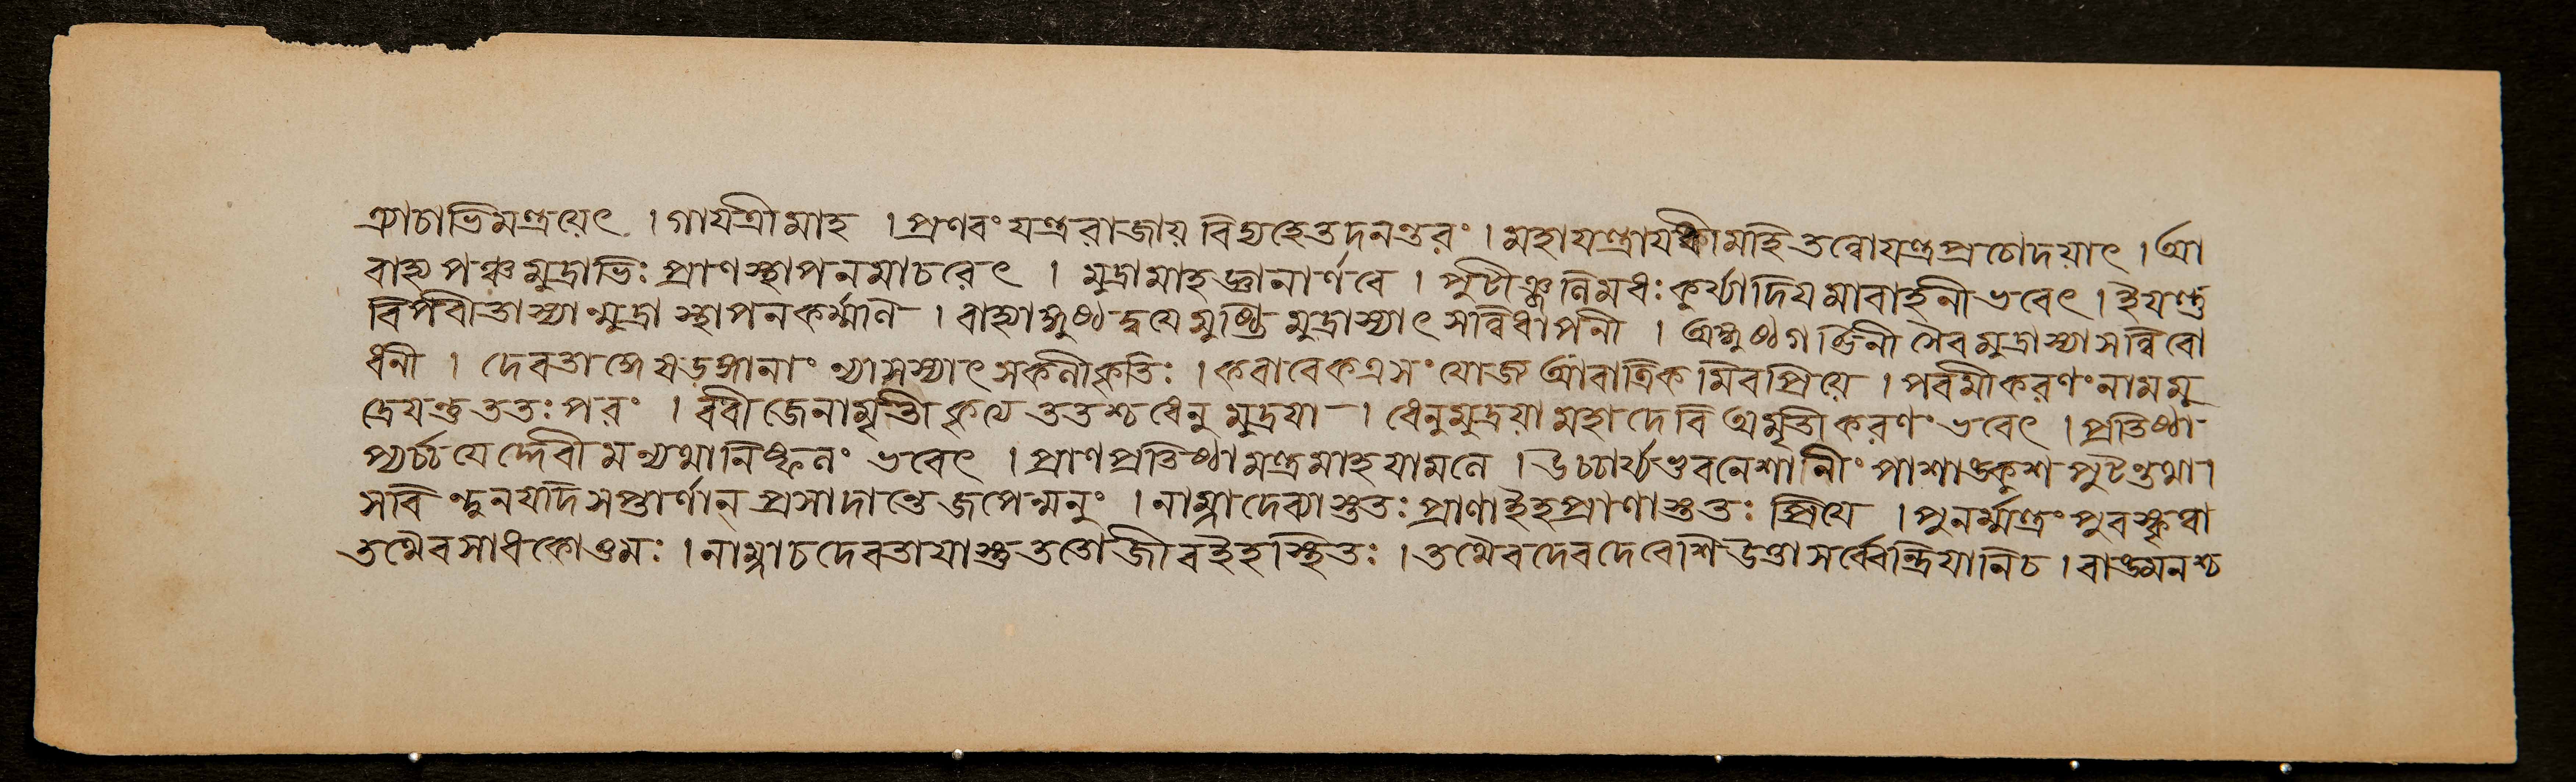 ঞাচাভিমন্ত্রয়েৎ । গায়ত্রীমাহ । প্রণবং যন্ত্ররাজায় বিদ্মহে তদনন্তরং । মহাযন্ত্রায় ধীমহি তন্নো যন্ত্র প্রচোদয়াৎ । আ
বাহ্য পঞ্চমুদ্রাভিঃ প্রাণস্থাপনমাচরেৎ । মুদ্রামাহ জ্ঞানার্ণবে । পুটাঞ্জলিমধঃ কুর্য্যাদিয়মাবাহনী ভবেৎ । ইয়ন্তু
বিপরীতা স্যান্মুদ্রা স্থাপনকর্ম্মণি । বাহ্যাঙ্গুষ্ঠদ্বয়ে মুষ্টি মুদ্রাস্যাৎ সন্নিধাপনী । অঙ্গুষ্ঠগর্ভিনী সৈব মুদ্রাস্যা সন্নিরো
ধনী । দেবতাঙ্গে ষড়ঙ্গানাং ন্যাসস্যাৎ সকলীকৃতিঃ । করাবেকত্র সংযোজ্য আরাত্রিকমিব প্রিয়ে । পরমীকরণং নামমু
দ্রেয়ন্তু ততঃ পরং । রবীজেনামৃতীকৃত্য ততশ্চ ধেনুমুদ্রয়া । ধেনুমুদ্রয়া মহাদেবি অমৃতীকরণং ভবেৎ । প্রতিষ্ঠা
প্যর্চ্চয়েদ্দেবীমন্যথা নিষ্ফলং ভবেৎ । প্রাণপ্রতিষ্ঠামন্ত্রমাহ যামলে । উচ্চার্য্য ভুবনেশানীং পাশাঙ্কুশপুটন্তথা ।
সবিন্দুনয়াদি সপ্তার্ণান্ প্রসাদান্তে জপেন্মনুং । নাম্না দেব্যাস্ততঃ প্রাণা ইহ প্রাণাস্ততঃ প্রিয়ে । পুনর্ম্মন্ত্রং পুরস্কৃত্বা
তথৈব সাধকোত্তমঃ । নাম্নাচ দেবতায়াস্তু ততো জীব ইহ স্থিতঃ । তথৈব দেবদেবেশি উক্তা সর্ব্বেন্দ্রিয়ানিচ । বাঙ্মনশ্চ